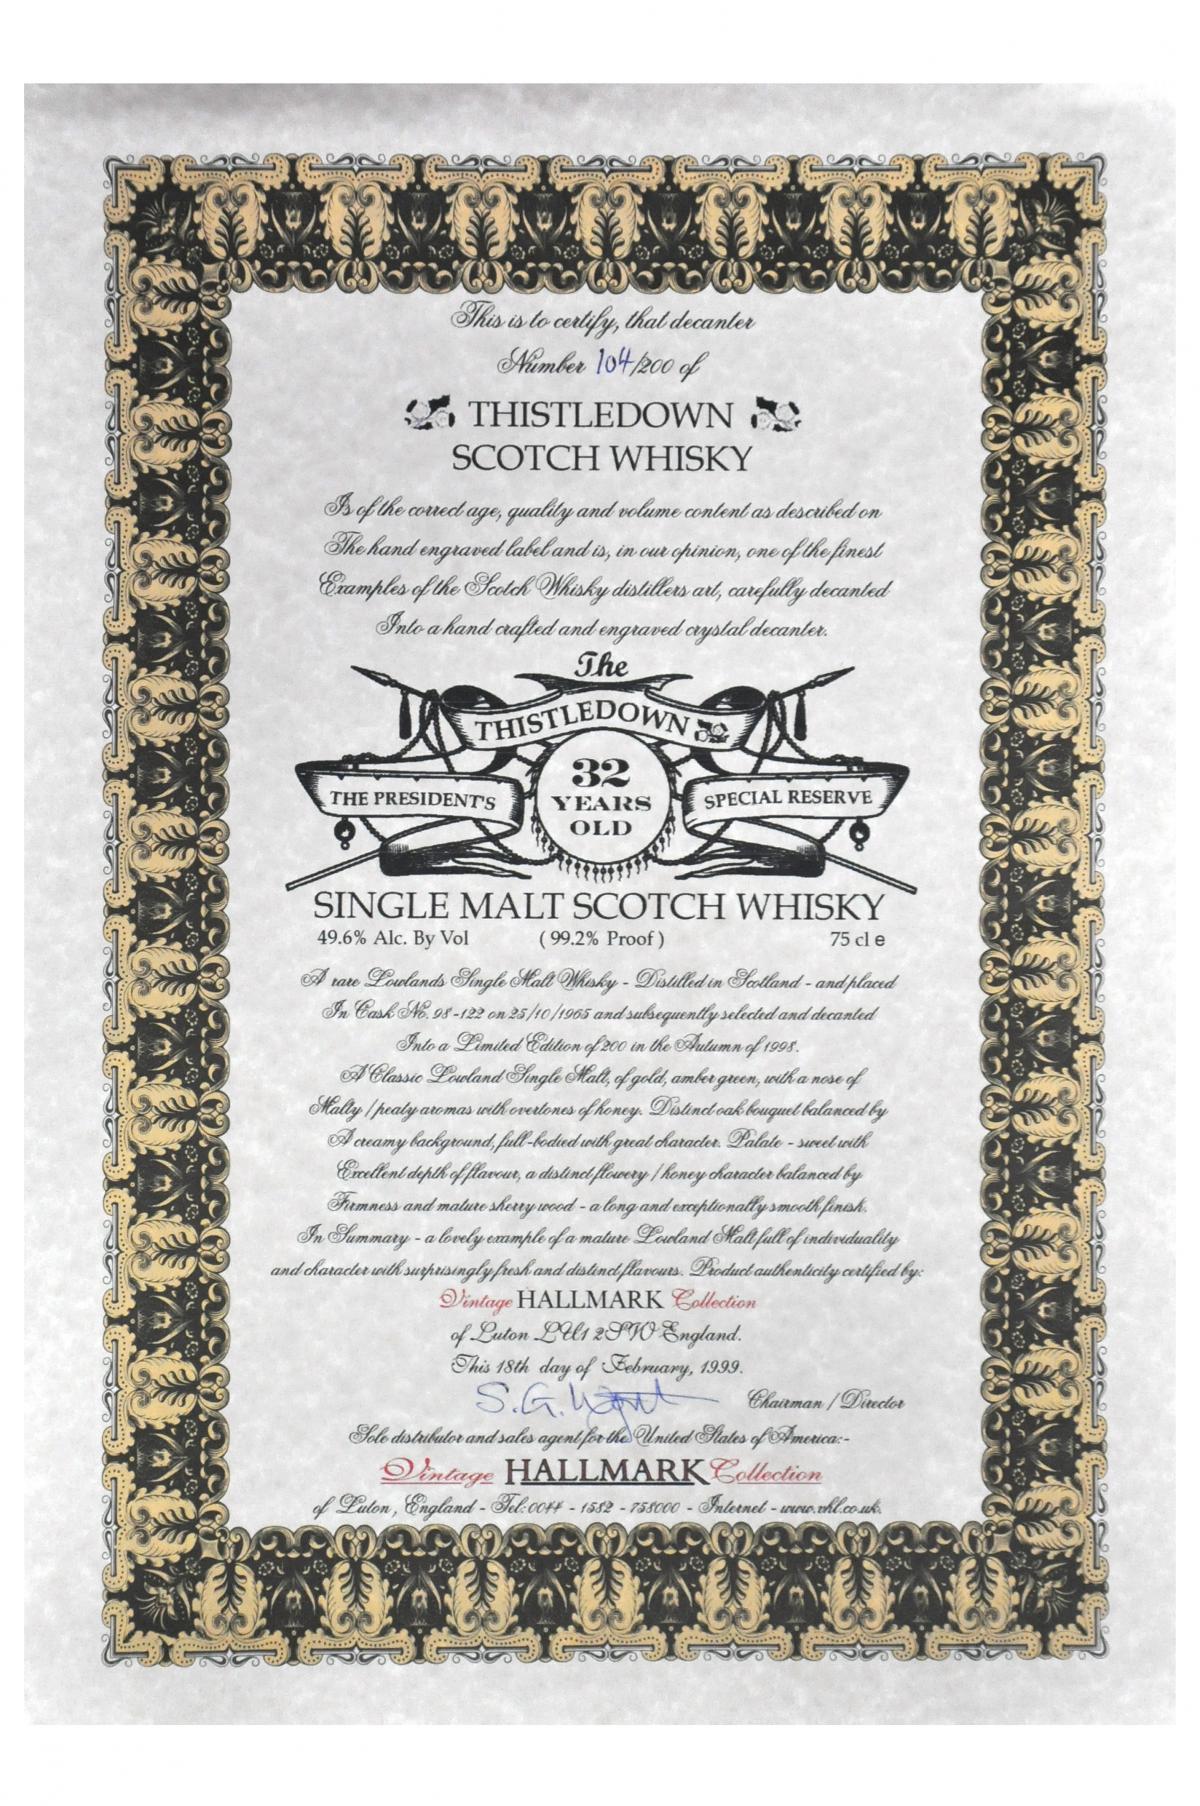 This is to certify, that decanter
Number 104/200 of
THISTLEDOWN
SCOTCH WHISKY
Is of the correct age, quality and volume content as described on
The hand engraved label and is, in our opinion, one of the finest
Examples of the Scotch Whisky distillers art, carefully decanted
Into a hand crafted and engraved crystal decanter.
The
THISTLEDOWN
32
YEARS
OLD
THE PRESIDENT'S
SPECIAL RESERVE
SINGLE MALT SCOTCH WHISKY
49.6% Alc. By Vol (99.2% Proof) 75 cl e
A rare Lowlands Single Malt Whisky - Distilled in Scotland - and placed
In Cask No. 98-122 on 25/10/1965 and subsequently selected and decanted
Into a Limited Edition of 200 in the Autumn of 1998.
A Classic Lowland Single Malt, of gold, amber green, with a nose of
Malty / peaty aromas with overtones of honey. Distinct oak bouquet balanced by
A creamy background, full-bodied with great character. Palate - sweet with
Excellent depth of flavour, a distinct flowery / honey character balanced by
Firmness and mature sherry wood - a long and exceptionally smooth finish.
In Summary - a lovely example of a mature Lowland Malt full of individuality
and character with surprisingly fresh and distinct flavours. Product authenticity certified by:
Vintage HALLMARK Collection
of Luton LU1 2SW England.
This 18th day of February, 1999.
S. G.
Chairman / Director
Sole distributor and sales agent for the United States of America:-
Vintage HALLMARK Collection
of Luton, England - Tel: 0044 - 1582 - 758000 - Internet - www.vhl.co.uk.